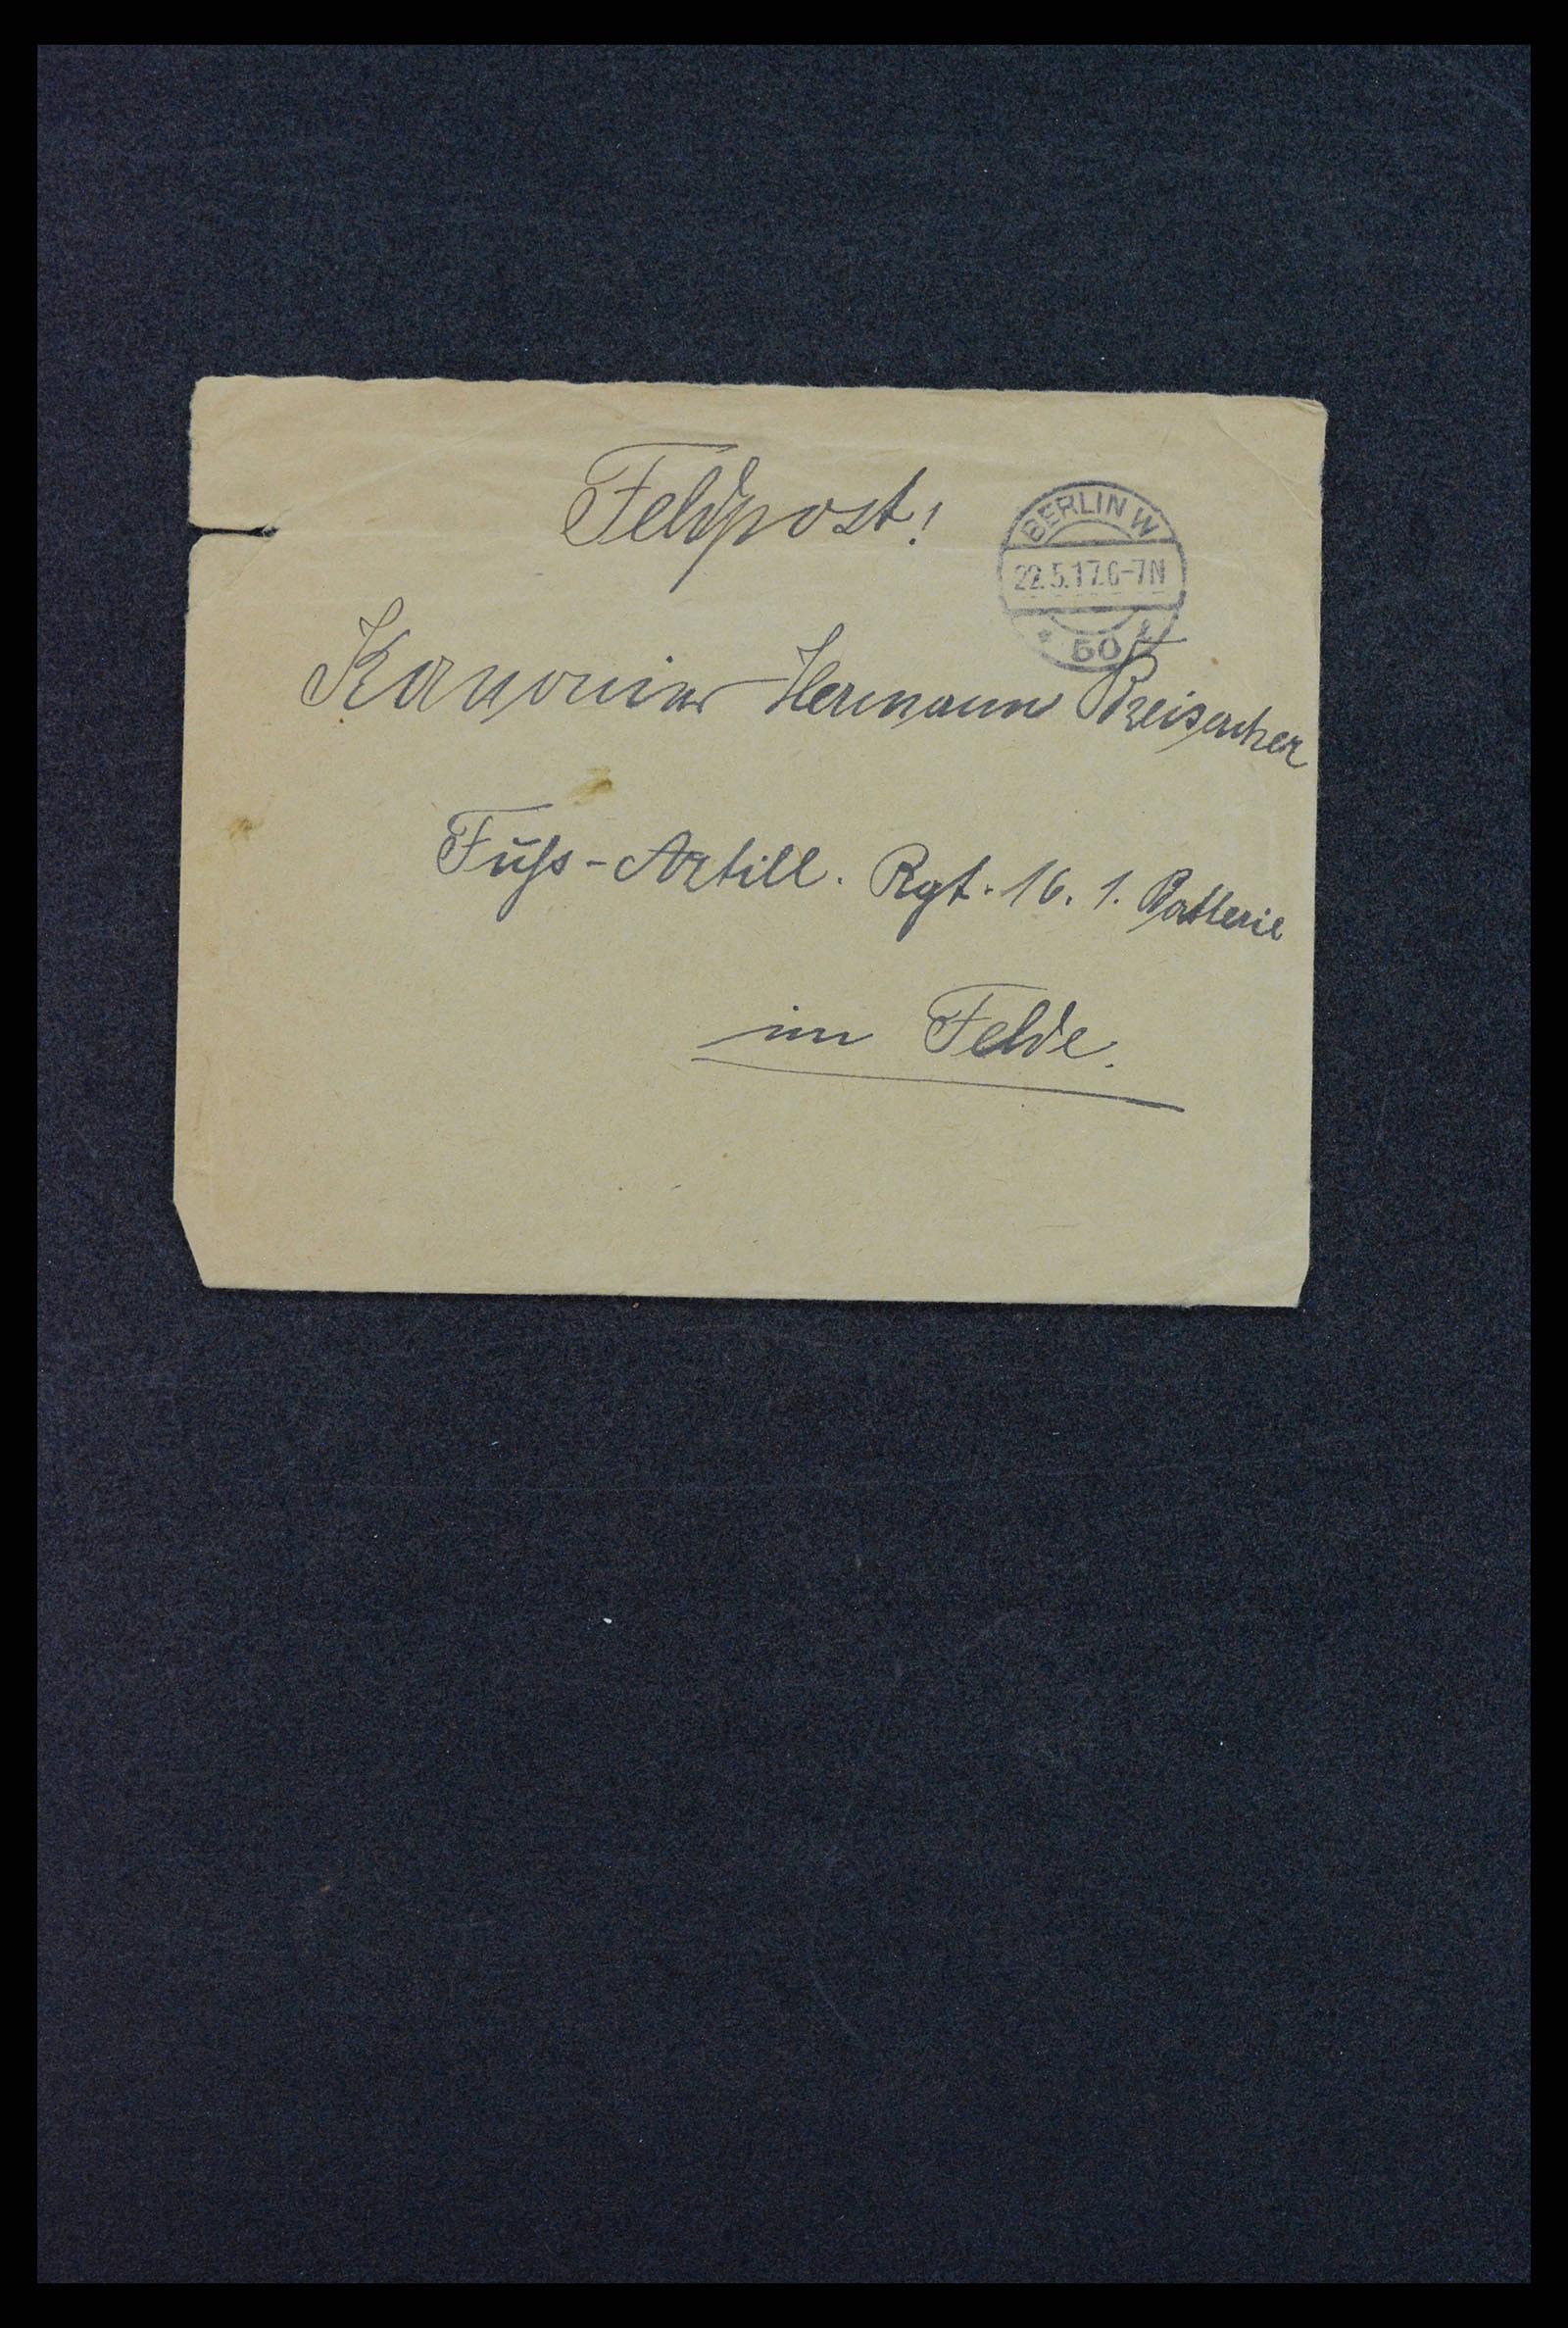 Feldpost!
BERLIN W
22.5.17.6-7N
* 50
Kanonier Hermann Breisacher
Fuß-Artill. Rgt. 16. 1. Batterie
im Felde.